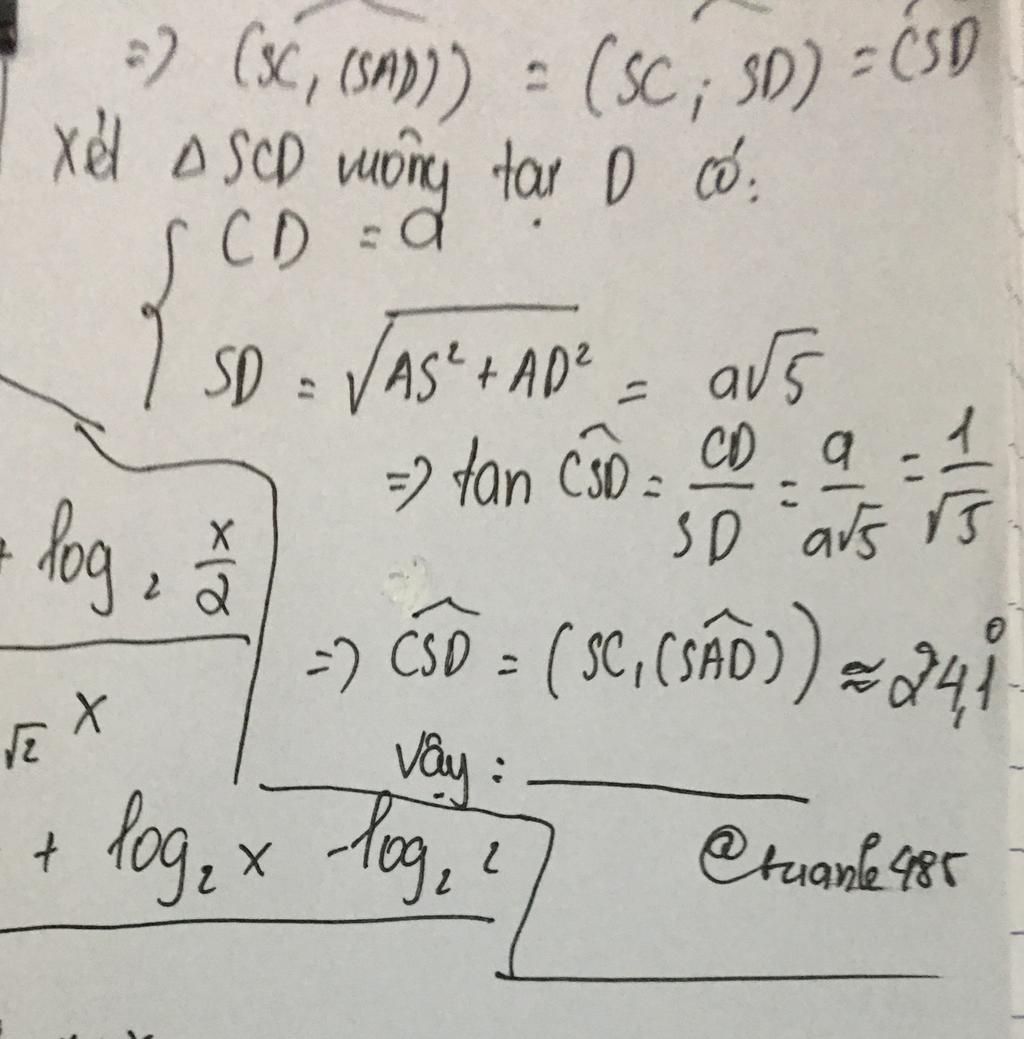 => (SC, (SAD)) = (SC; SD) = CSD
Xét Δ SCD vuông tại D có:
{ CD = a
SD = √(AS² + AD²) = a√5
=> tan CSD = CD/SD = a/(a√5) = 1/√5
+ log₂ x/2
=> CSD = (SC, (SAD)) ≈ 24,1°
√2 x
Vậy :
+ log₂ x - log₂ 2
@tuanle485